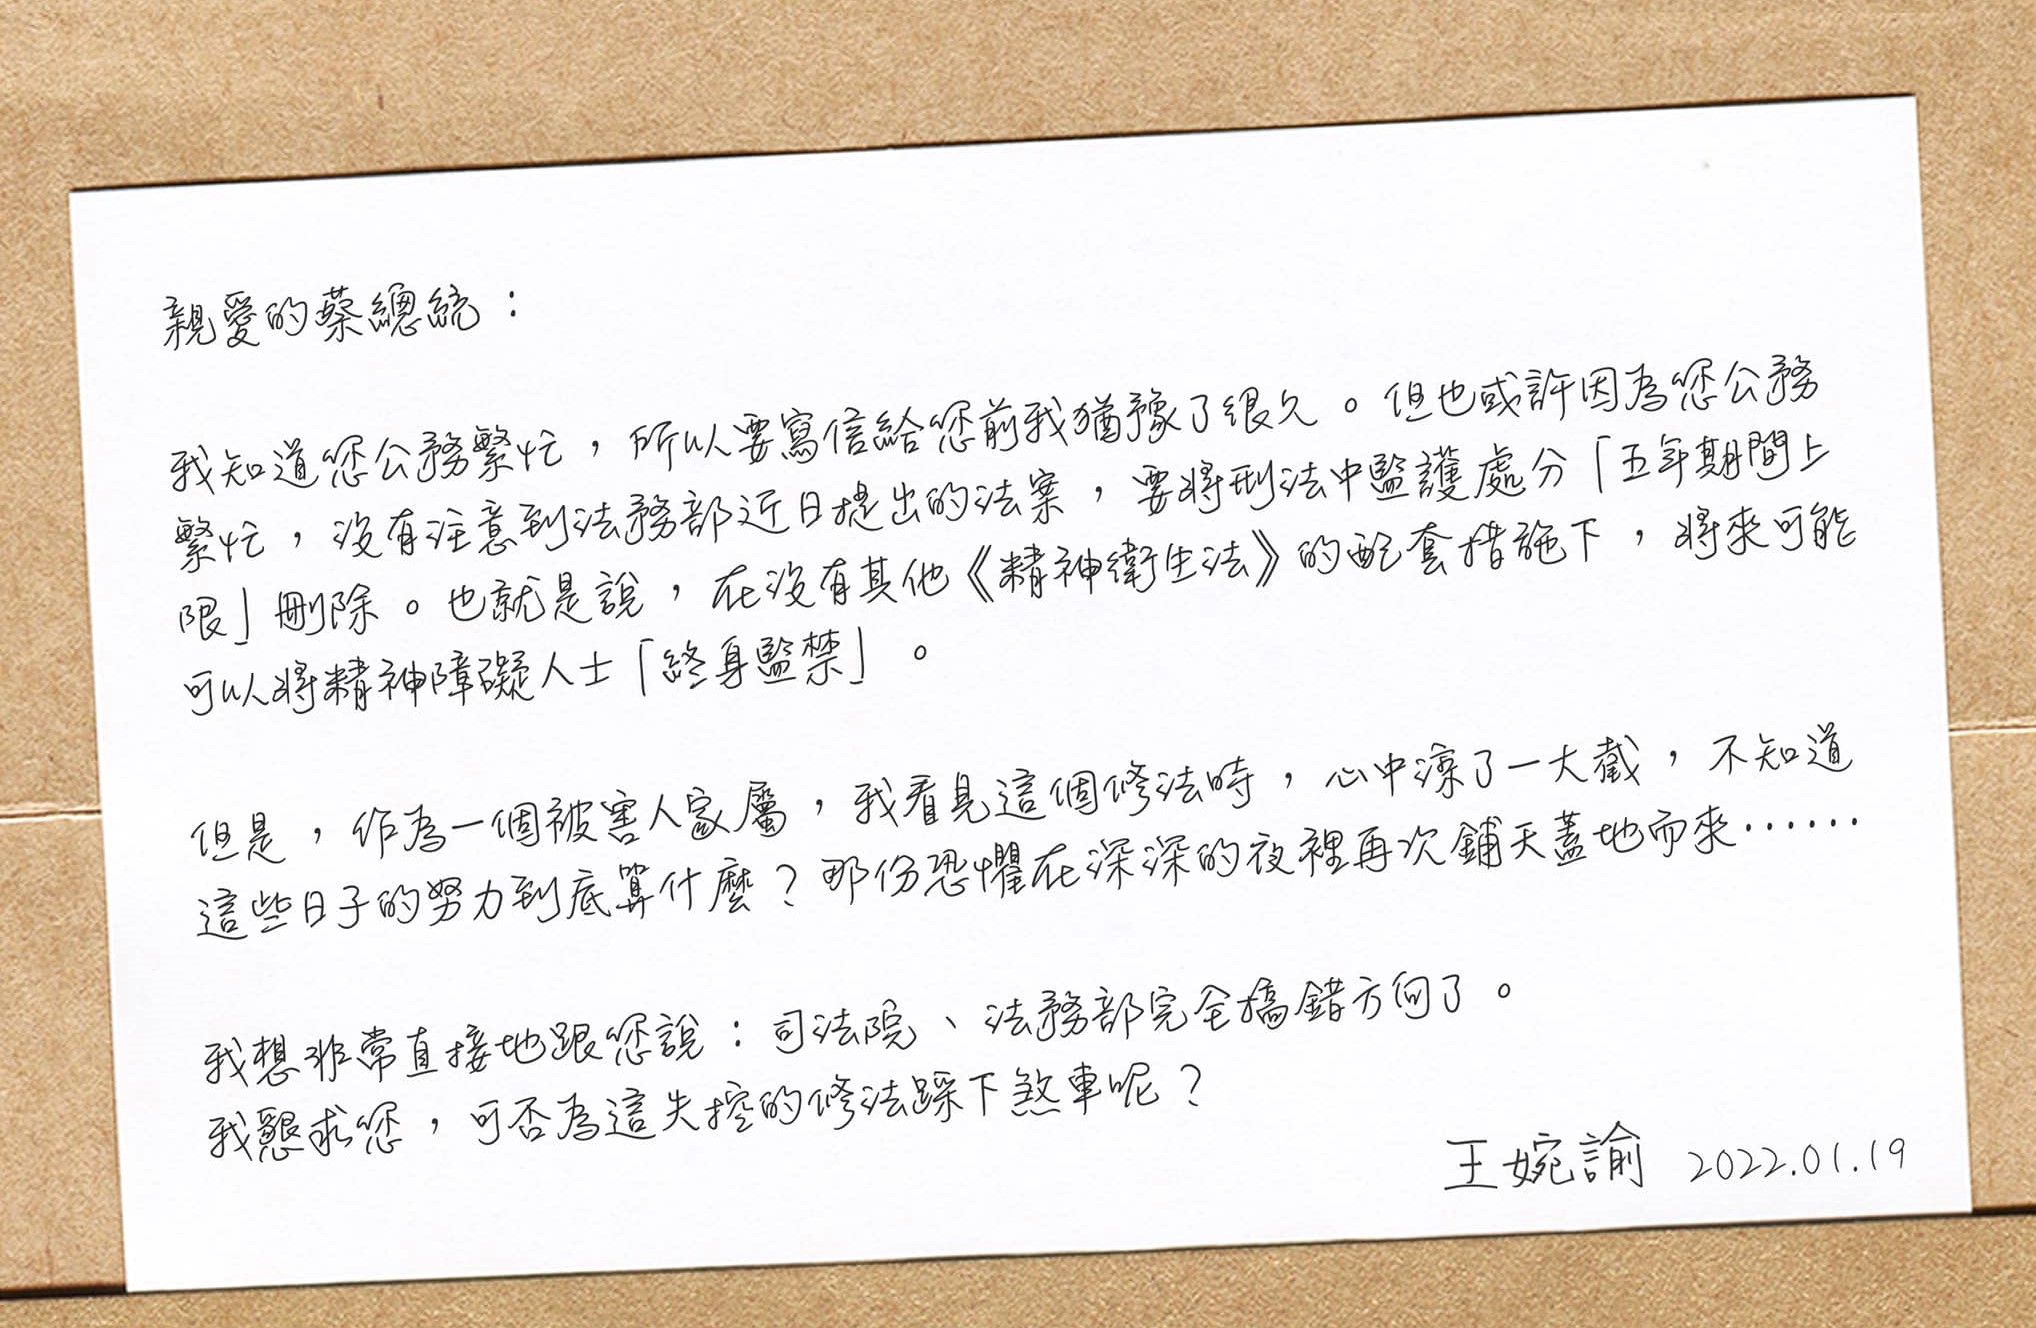 親愛的蔡總統：
我知道您公務繁忙，所以要寫信給您前我猶豫了很久。但也或許因為您公務
繁忙，沒有注意到法務部近日提出的法案，要將刑法中監護處分「五年期間上
限」刪除。也就是說，在沒有其他《精神衛生法》的配套措施下，將來可能
可以將精神障礙人士「終身監禁」。
但是，作為一個被害人家屬，我看見這個修法時，心中涼了一大截，不知道
這些日子的努力到底算什麼？那份恐懼在深深的夜裡再次鋪天蓋地而來⋯⋯
我想非常直接地跟您說：司法院、法務部完全搞錯方向了。
我懇求您，可否為這失控的修法踩下煞車呢？
王婉諭 2022.01.19